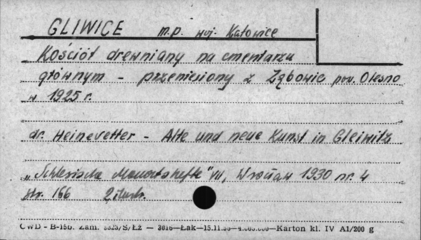 GLIWICE m.p. woj. Katowice
Kościół drewniany na cmentarzu
głównym - przeniesiony z Zębowic pow. Olesno
w 1925 r.
dr. Heinevetter - Alte und neue Kunst in Gleiwitz
„Schlesische Monatshefte" VII, Wrocław 1930 nr. 4
str. 166 2 ilustr.
CWD - B-156. Zam. Karton kl. IV A1/200 g